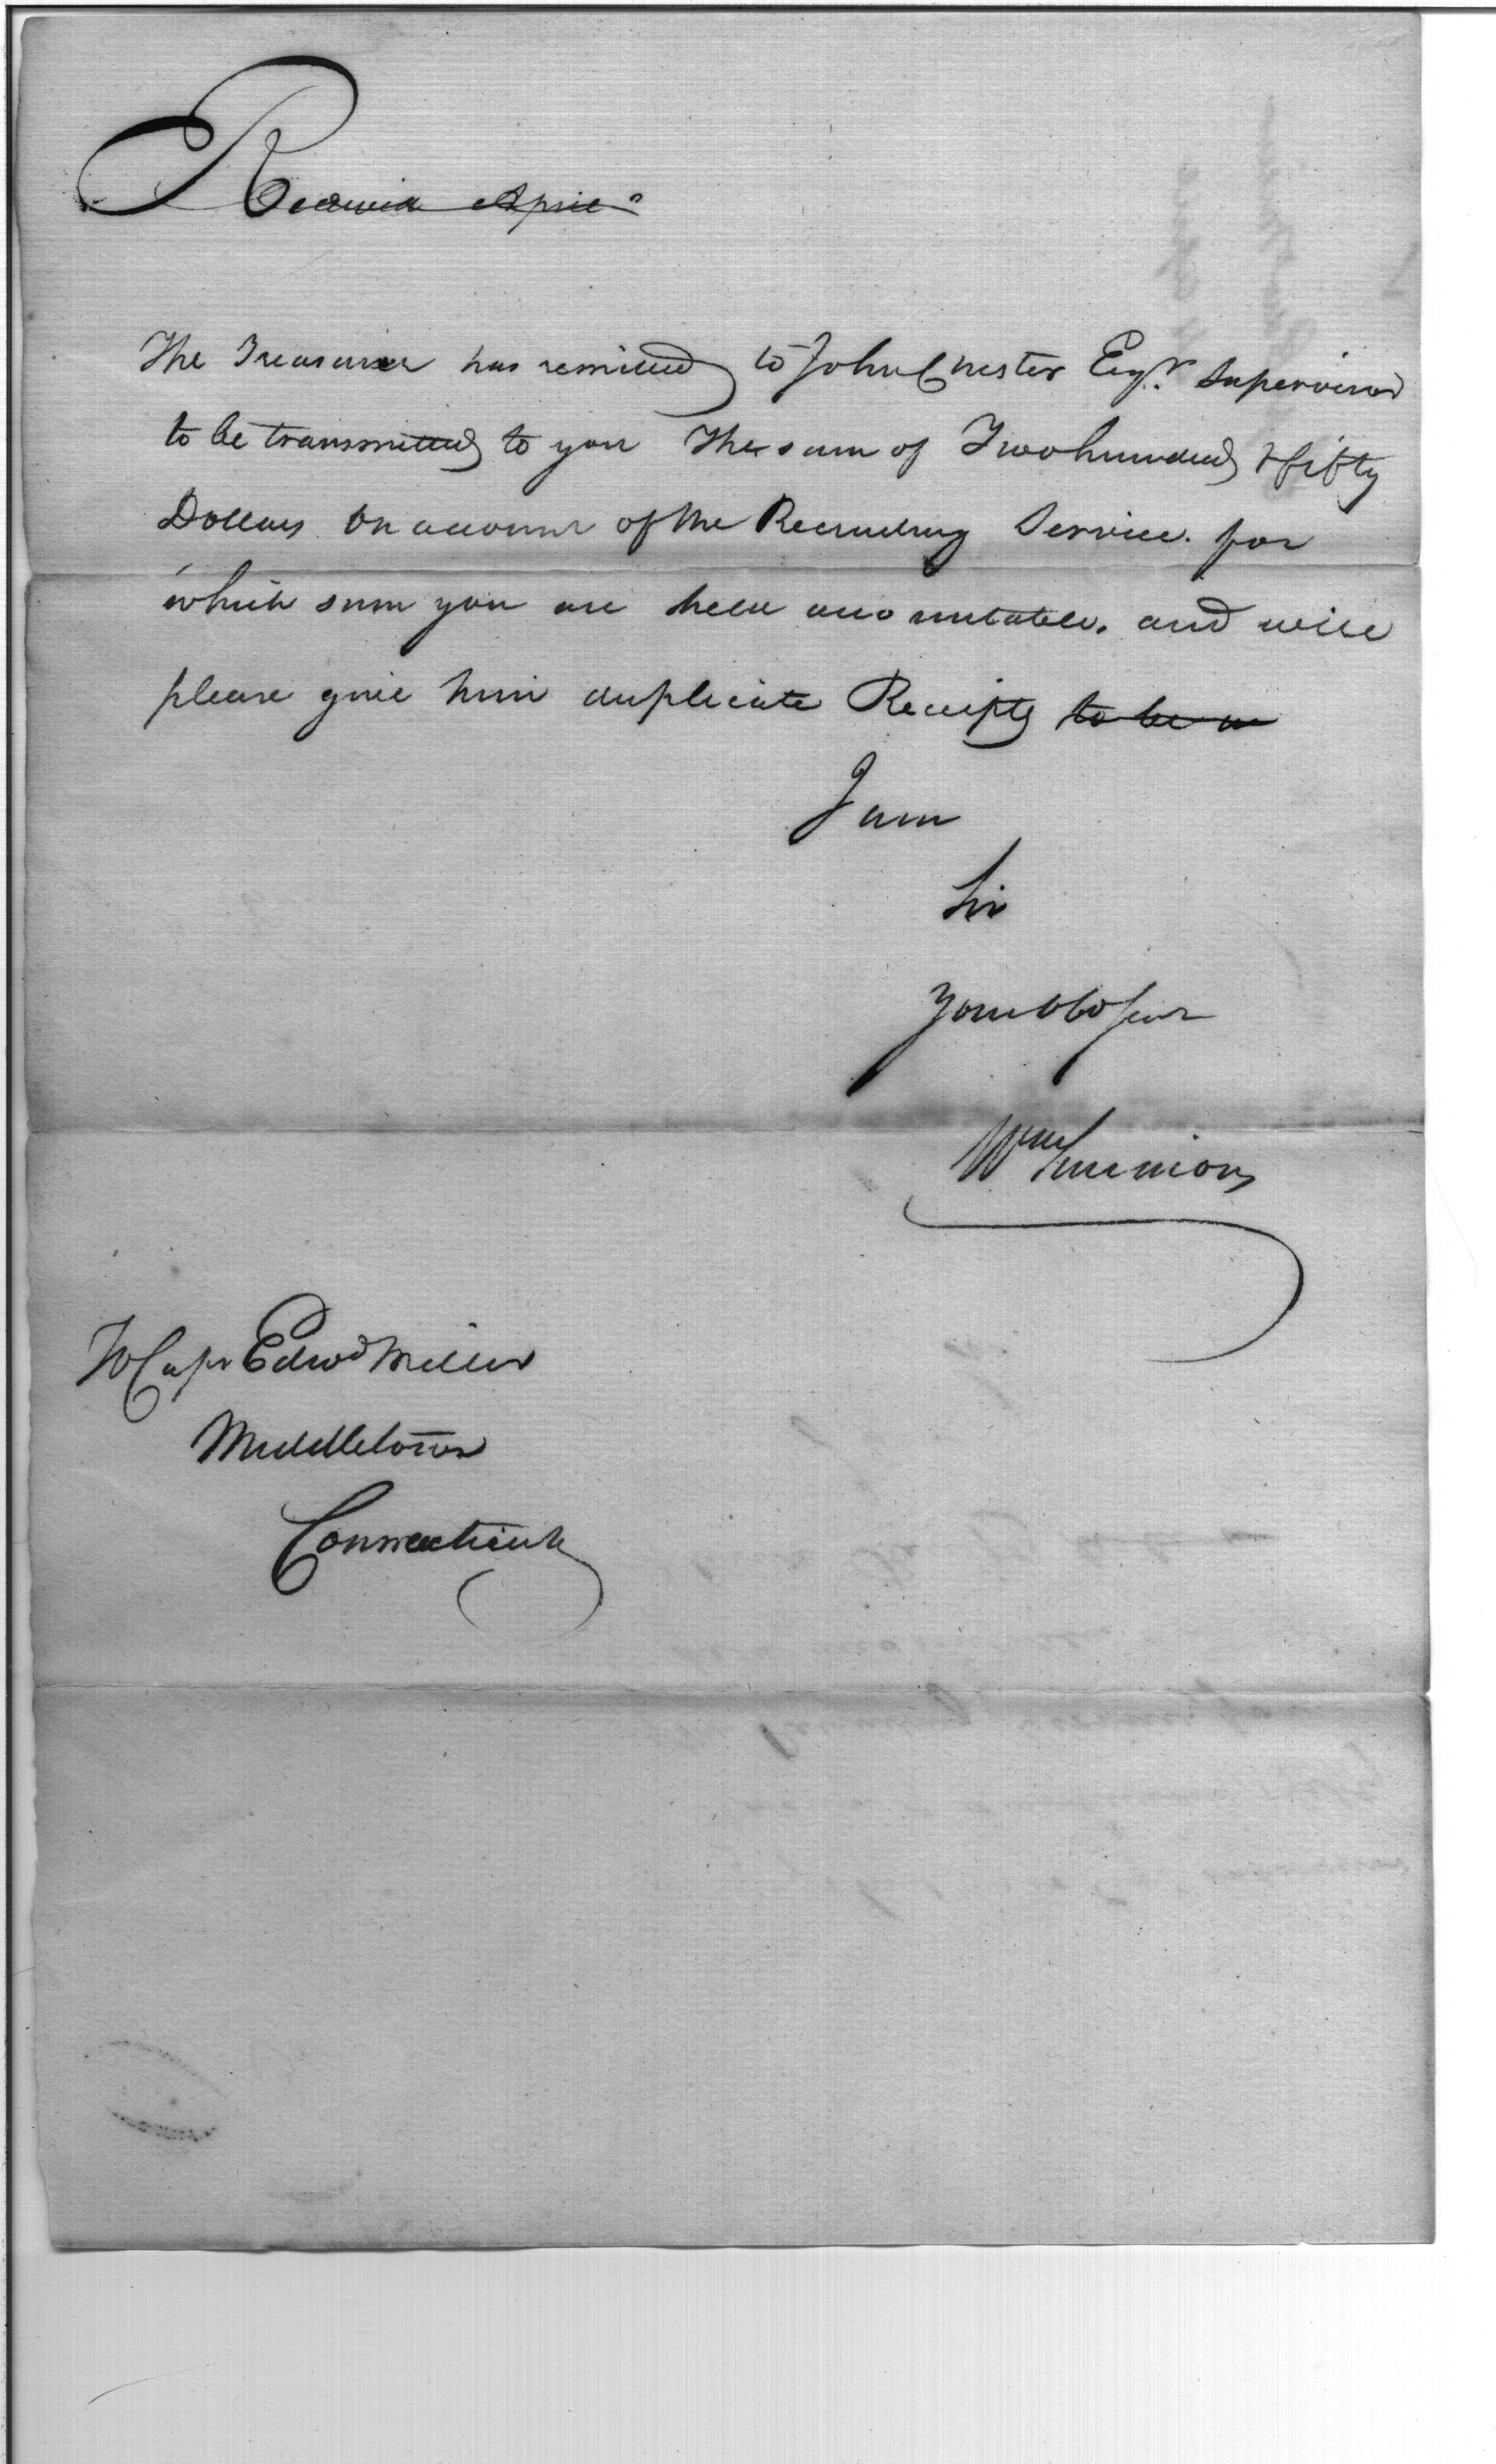 Received April
The Treasurer has remitted to John Chester Esqr. Supervisor
to be transmitted to you The sum of Two hundred & fifty
Dollars on account of the Recruiting Service. for
which sum you are held accountable. and will
please give him duplicate Receipts to be
I am
Sir
Your Obd Servt
Wm Simmons
To Capt Edwd Miller
Middletown
Connecticut